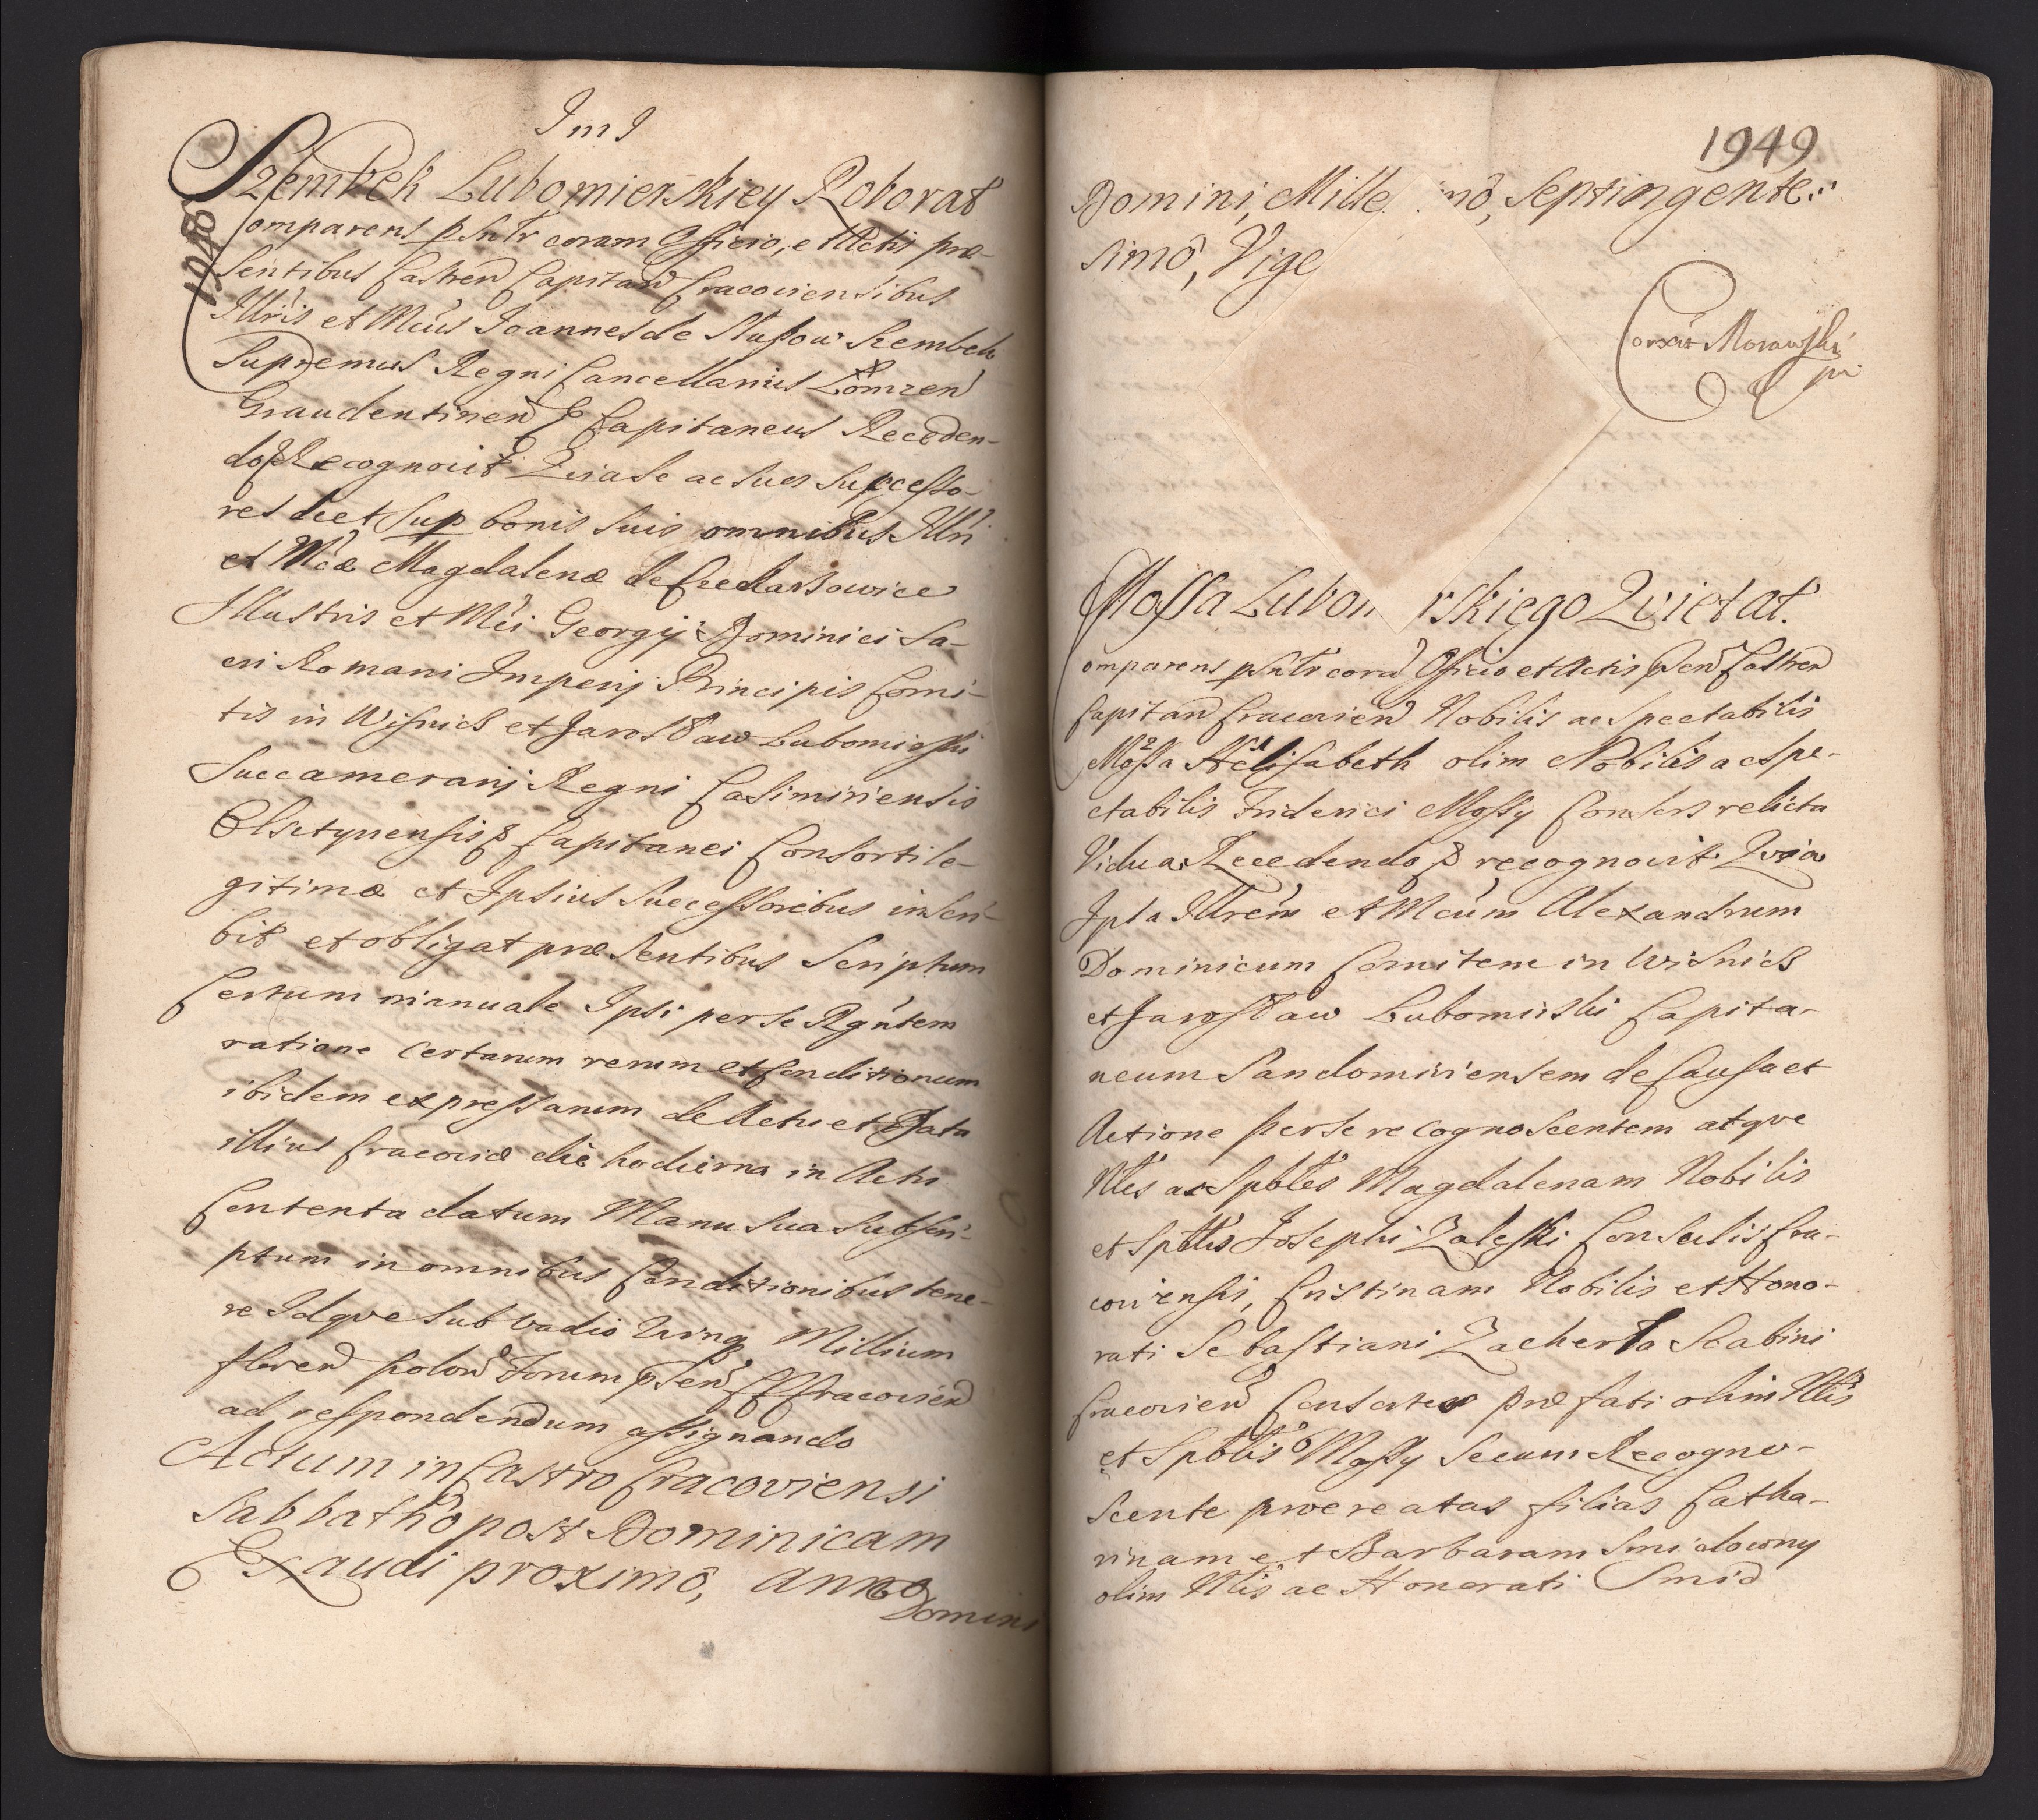 ImI
1948
Szembek Lubomierskiey Roborat
Comparens psntr coram Officio, et Actis præ-
sentibus Castren Capitan Cracoviensibus
Illris et Mcus Joannes de Słupow Szembek
Supremus Regni Cancellarius Łomzen
Graudentinen & Capitaneus Receden-
do & Recognovit Quia Se ac suos Successo-
res de et sup bonis suis omnibus Illri
et Mcæ Magdalenæ de
Illustris et Mci Georgij Dominici Sa-
cri Romani Imperij Principis Comi-
tis in Wisnicz et Jarosław Lubomirski
Succamerarij Regni Casimiriensis
Olsztynensis & Capitanei Consorti le-
gitimæ et Ipsius Successoribus inscri-
bit et obligat præsentibus Scriptum
Certum manuale Ipsi per se Rgntem
ratione certarum rerum et Conditionum
ibidem expressarum de Actu et Data
illius Cracoviæ die hodierna in Actu
Contenta datum Manu sua Subscri-
ptum in omnibus Conditionibus tene-
re Idqve sub vadio Millium
floren polon Forum psen Cracovien
ad respondendum assignando
Actum in Castro Cracoviensi
Sabbathô post Dominicam
Exaudi proximô, Anno
Domini
1949
Domini, Mille mô, Septingente-
simô, Vige
Corxit Morawski
mpr
Mossa Lubom rskiego Qvietat.
Comparens psntr cora Officio et Actis psen Castren
Capitan Cracovien Nobilis ac Spectabilis
Mossa Elisabeth olim Nobilis ac Spe-
ctabilis Friderici Mossy Consors relicta
Vidua Recedendo & recognovit Qvia
Ipsa Illrem et Mcum Alexandrum
Dominicum Comitem in Wisnicz
et Jarosław Lubomirski Capita-
neum Sandomiriensem de Causa et
Actione per se recognoscentem atqve
Nbles ac Spbles Magdalenam Nobilis
et Spblis Josephi Zaleski Consulis Cra-
coviensis, Cristinam Nobilis et Hono-
rati Sebastiani Zacherla Scabini
Cracovien Consortes præfati olim Nblis
et Spblis Mossy secum Recogno-
scente procreatas filias Catha-
rinam et Barbaram Smidowny
olim Nblis ac Honorati Smid